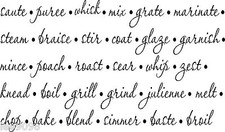 saute • puree • whisk • mix • grate • marinate •
steam • braise • stir • coat • glaze • garnish •
mince • poach • roast • sear • whip • zest •
knead • boil • grill • grind • julienne • melt •
chop • bake • blend • simmer • baste • broil